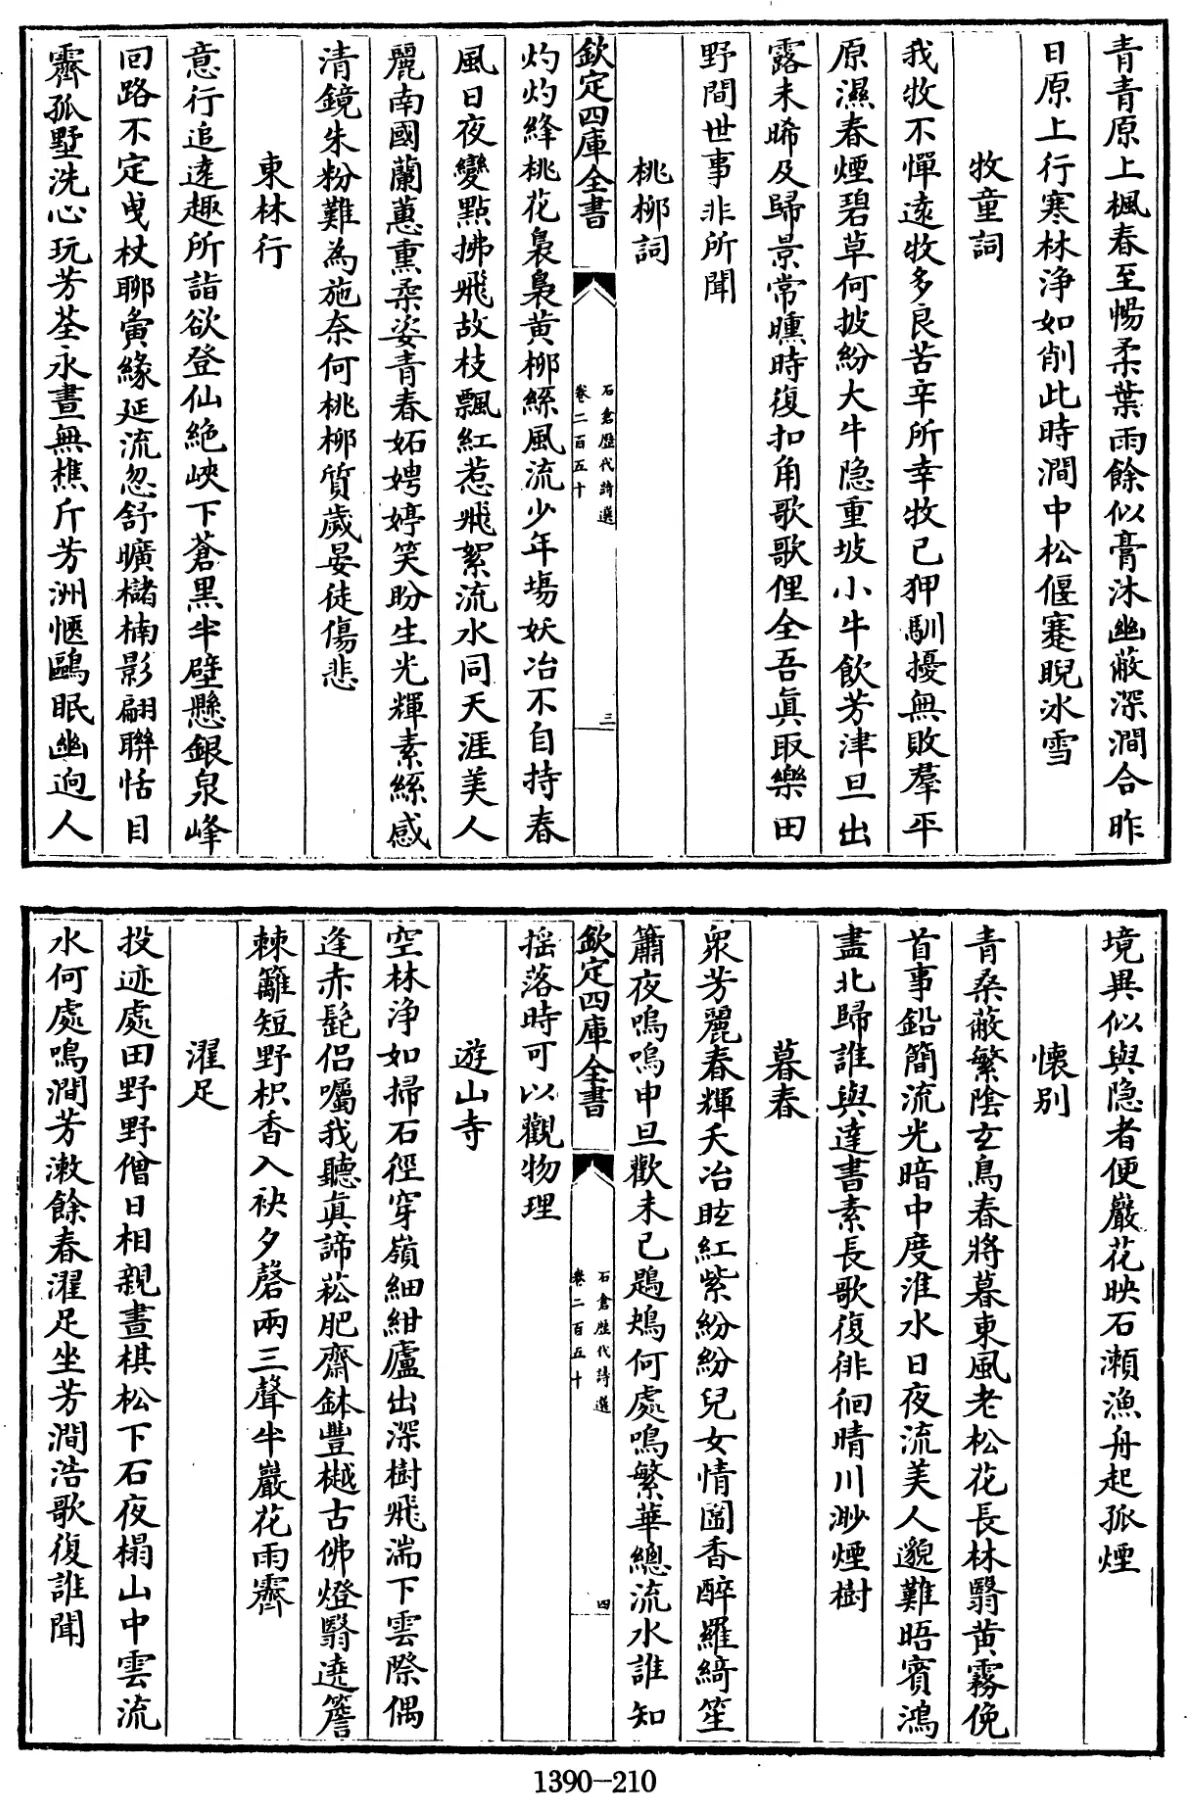 青青原上楓春至暢柔葉雨餘似膏沐幽蔽深澗合昨
日原上行寒林浄如削此時澗中松偃蹇睨冰雪
牧童詞
我牧不憚遠牧多良苦辛所幸牧已狎馴擾無敗羣平
原濕春煙碧草何披紛大牛隐重坡小牛飲芳津旦出
露未晞及歸景常曛時復扣角歌歌俚全吾真取樂田
野間世事非所聞
桃柳詞
欽定四庫全書
石倉歷代詩選
卷二百五十
三
灼灼絳桃花裊裊黄柳絲風流少年塲妖冶不自持春
風日夜變㸃拂飛故枝飄紅惹飛絮流水同天涯美人
麗南國蘭蕙熏柔姿青春妬娉婷笑盼生光輝素絲感
清鏡朱粉難為施奈何桃柳質歲晏徒傷悲
東林行
意行追逺趣所詣欲登仙絶峽下蒼黒半壁懸銀泉峰
回路不定曵杖聊夤緣延流忽舒曠櫧楠影翩聨恬目
霽孤墅洗心玩芳荃永晝無樵斤芳洲愜鷗眠幽逈人
境異似與隐者便巖花映石瀬漁舟起孤煙
懐别
青桑蔽繁陰𤣥鳥春將暮東風老松花長林翳黄霧俛
首事鉛簡流光暗中度淮水日夜流美人邈難晤賓鴻
盡北歸誰與達書素長歌復徘徊晴川渺煙樹
暮春
衆芳麗春輝夭冶眩紅紫紛紛兒女情圖香醉羅綺笙
簫夜嗚嗚申旦歡未已鶗鴂何處鳴繁華總流水誰知
欽定四庫全書
石倉歷代詩選
卷二百五十
四
揺落時可以觀物理
遊山寺
空林浄如掃石徑穿嶺細紺廬出深樹飛湍下雲際偶
逢赤髭侣囑我聽真諦菘肥齋鉢豐樾古佛燈翳遶簷
棘籬短野枳香入袂夕磬兩三聲半巖花雨霽
濯足
投迹處田野野僧日相親晝棋松下石夜榻山中雲流
水何處鳴澗芳漱餘春濯足坐芳澗浩歌復誰聞
1390-210